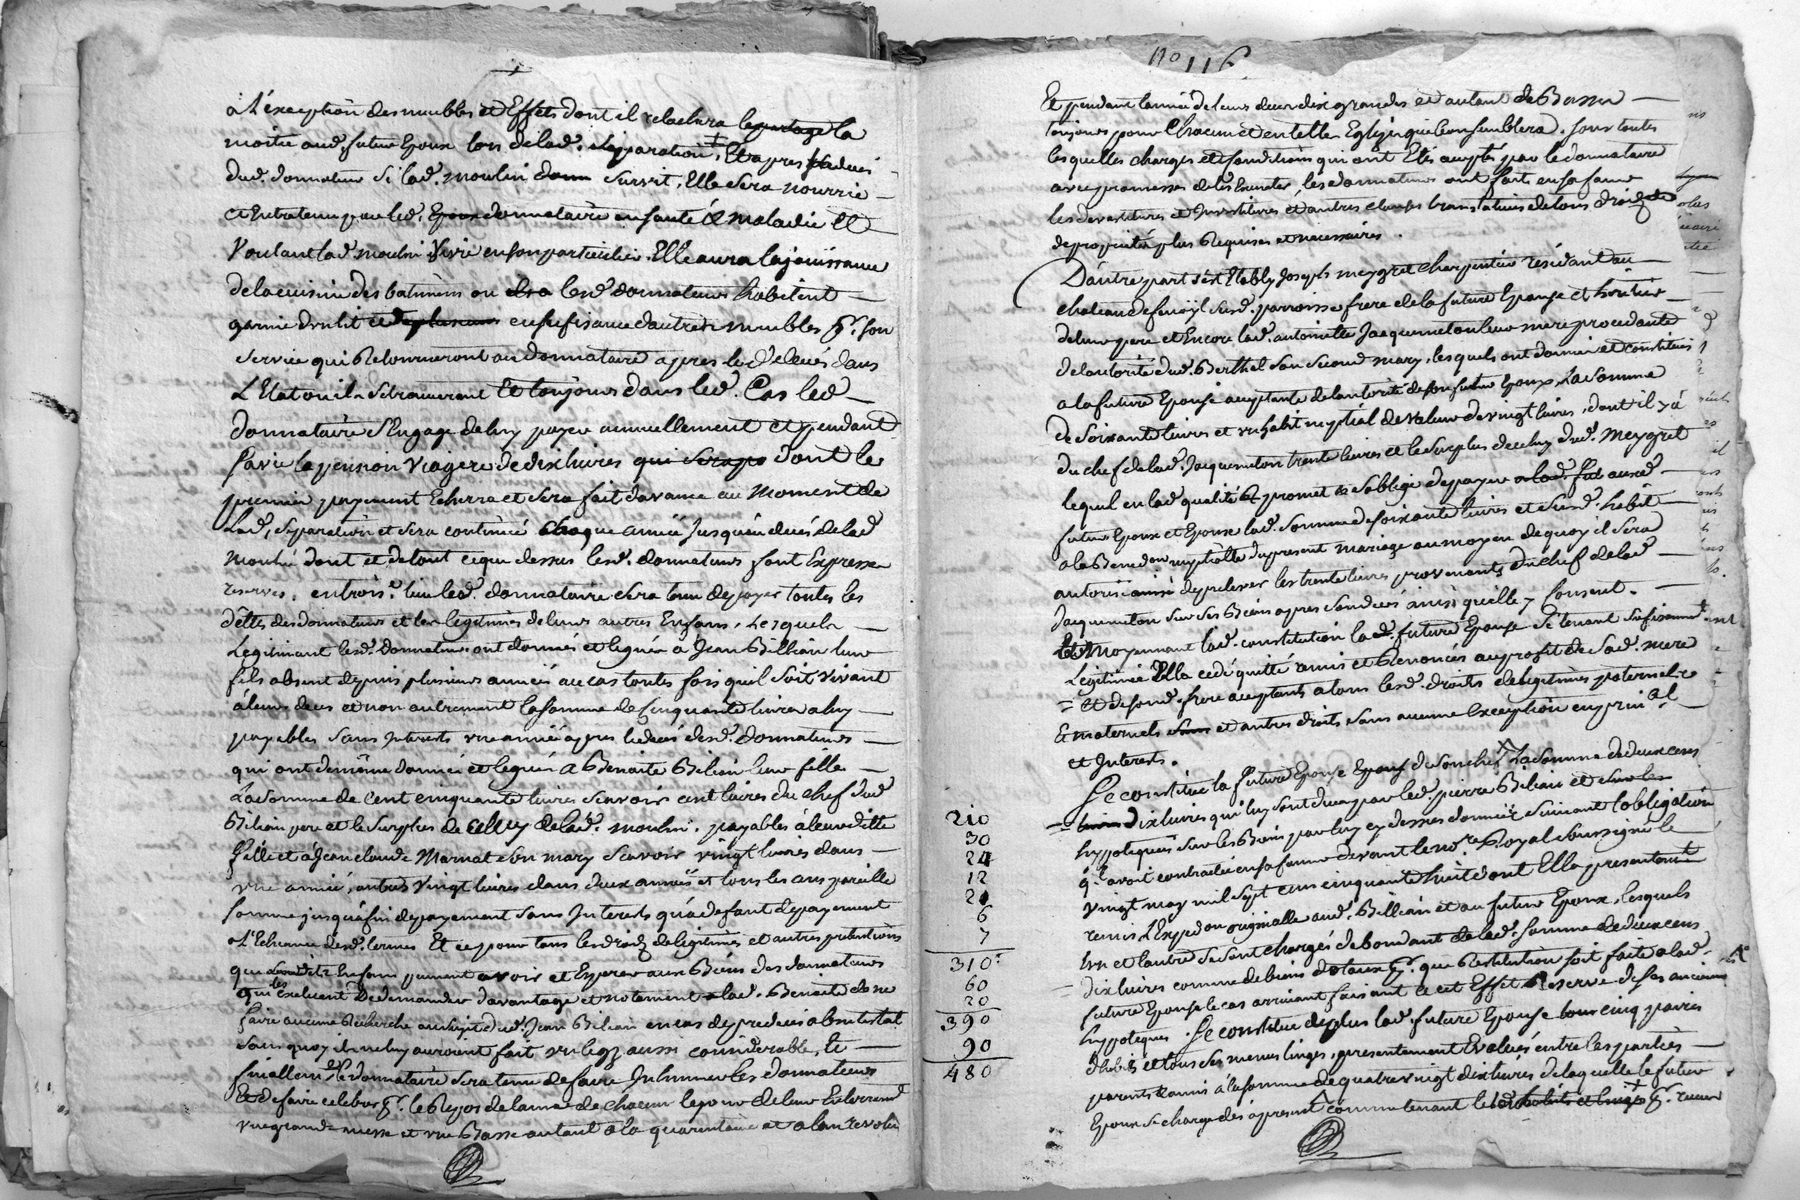 à l'éxception des meubles et Effets dont il relachera le partage la
moitié aud. futur Epoux lors de lad. séparation, Et apres deces
dud. donnateur si lad. moulin survit, Elle sera nourrie
et Entretenue par led. Epoux donnataire en santé & maladie Et
Voulant lad. moulin vivre en son particulier Elle aura la jouissance
de la cuisine des batimens ou lesd. donnateurs habitent
garnie d'un lit et de plusieurs en sufisance d'autres meubles pr. son
service qui Retourneront au donnataire apres led. deces dans
L'Etat ou il se trouveront Et toujours dans led. Cas led.
donnataire s'Engage de luy payer annuellement et pendant
sa vie la pension Viagere de dix livres dont le
premier payement Echerra et sera fait d'avance au moment de
Lad. séparation et sera continué chaque année jusqu'au deces de lad.
Moulin dont et de tout ce que dessus lesd. donnateurs font Expresse
reserve, led. donnataire sera tenu de payer toutes les
dettes des donnateurs et les legitimes de leurs autres Enfans, Lesquels
Legitimant lesd. donnateurs ont donnés et legués à Jean Billian leur
fils absent depuis plusieurs années au cas toutes fois qu'il soit vivant
à leurs deces et non autrement la somme de cinquante livres a luy
payables sans interets une année apres le deces desd. donnateurs
qui ont de même donnés et legués a Benoite Bilian leur fille
La somme de Cent cinquante livres scavoir cent livres du chef dud.
Bilian pere et le surplus de celluy de lad. moulin, payables à leurditte
fille et à Jean claude Marnat son mary scavoir vingt livres dans
une année, autres vingt livres dans deux années et tous les ans pareille
somme jusqu'a fin de payement sans Interets qu'a defaut de payement
a L'Echeance desd. termes Et ce pour tous les droits de legitimes et autres pretentions
que lesdits Enfans peuvent avoir et Esperer aux Biens des donnateurs
qui les Excluent de demander davantage et notament a lad. Benoite de ne
faire aucune Recherche au sujet dud. Jean Bilian en cas de predeces ab intestat
finallem. led. donnataire sera tenu de faire Inhumer les donnateurs
Et de faire celebrer pr. le Repos de l'ame de chacun le jour de leur Enterrement
une grande messe et une Basse autant a la quarantaine et a l'an revolu
no 116
Et pendant l'année de leurs deces dix grandes et autant de Basses
toujours pour Chacun et en telle Eglise que bon semblera. sous toutes
lesquelles charges et conditions qui ont Etés acceptés par le donnataire
avec promesses de les Executer, les donnateurs ont fait en sa faveur
les devestitures et Investitures et autres clauses translatives de tous droits
de propriétés plus Requises et necessaires.
D'autre part s'est Etably Joseph meygret charpentier résidant au
chateau de susd. parroisse frere de la future Epouse et heritier
de leur pere et Encore lad. antoinette Jacquemeton leur mere procedante
de l'autorité dud. Berthel son second mary, lesquels ont donnés et constitués
a la future Epouse acceptante de l'autorité de son futur Epoux La somme
de soixante livres et un habit nuptial de valeur de vingt livres, dont il y a
du chef de lad. Jacquemeton trente livres et le surplus de celuy dud. Meygret
lequel en lad. qualité promet & s'oblige de payer
futurs Epoux et Epouse lad. somme de soixante livres et susd. habit
a la Benediction nuptialle du present mariage au moyen de quoy il sera
autorisé de prelever les trente livres provenants du chef de lad.
Jacquemeton sur ses Biens apres son deces ainsi qu'elle y consent.
Et Moyennant lad. constitution lad. future Epouse se tenant sufisament
Légitimée Elle a cedé quitté remis et Renoncés au profit de sad. mere
et de sond. frere acceptants a tous lesd. droits de legitimes paternels
& maternels et autres droits sans aucune Exception en principal
et Interets.
Se constitue la future Epouse de son chef La somme de deux cens
dix livres qui luy sont dues par led. pierre Bilian et
hypotequés sur les Biens par luy cy dessus donnés suivant l'obligation
q'l avoit contractée en sa faveur devant le nore Royal soussigné le
vingt may mil sept cens cinquante huit dont Ella presentement
remis L'Expedon originalle aud. Billian et au futur Epoux, lesquels
l'un et l'autre se sont chargés de lad. somme de deux cens
dix livres comme de biens dotaux pr. que Restitution soit faite a lad.
future Epouse le cas arrivant faisant a cet Effet Reserve de ses anciens
hypoteques Se constitue de plus lad. future Epouse
d'habits et tous ses menus linges, presentement Evalués entre les parties
parents & amis a la somme de quatre vingt dix livres de laquelle le futur
Epoux se charge dès a present
210
30
24
12
21
6
7
310
60
20
390
90
480